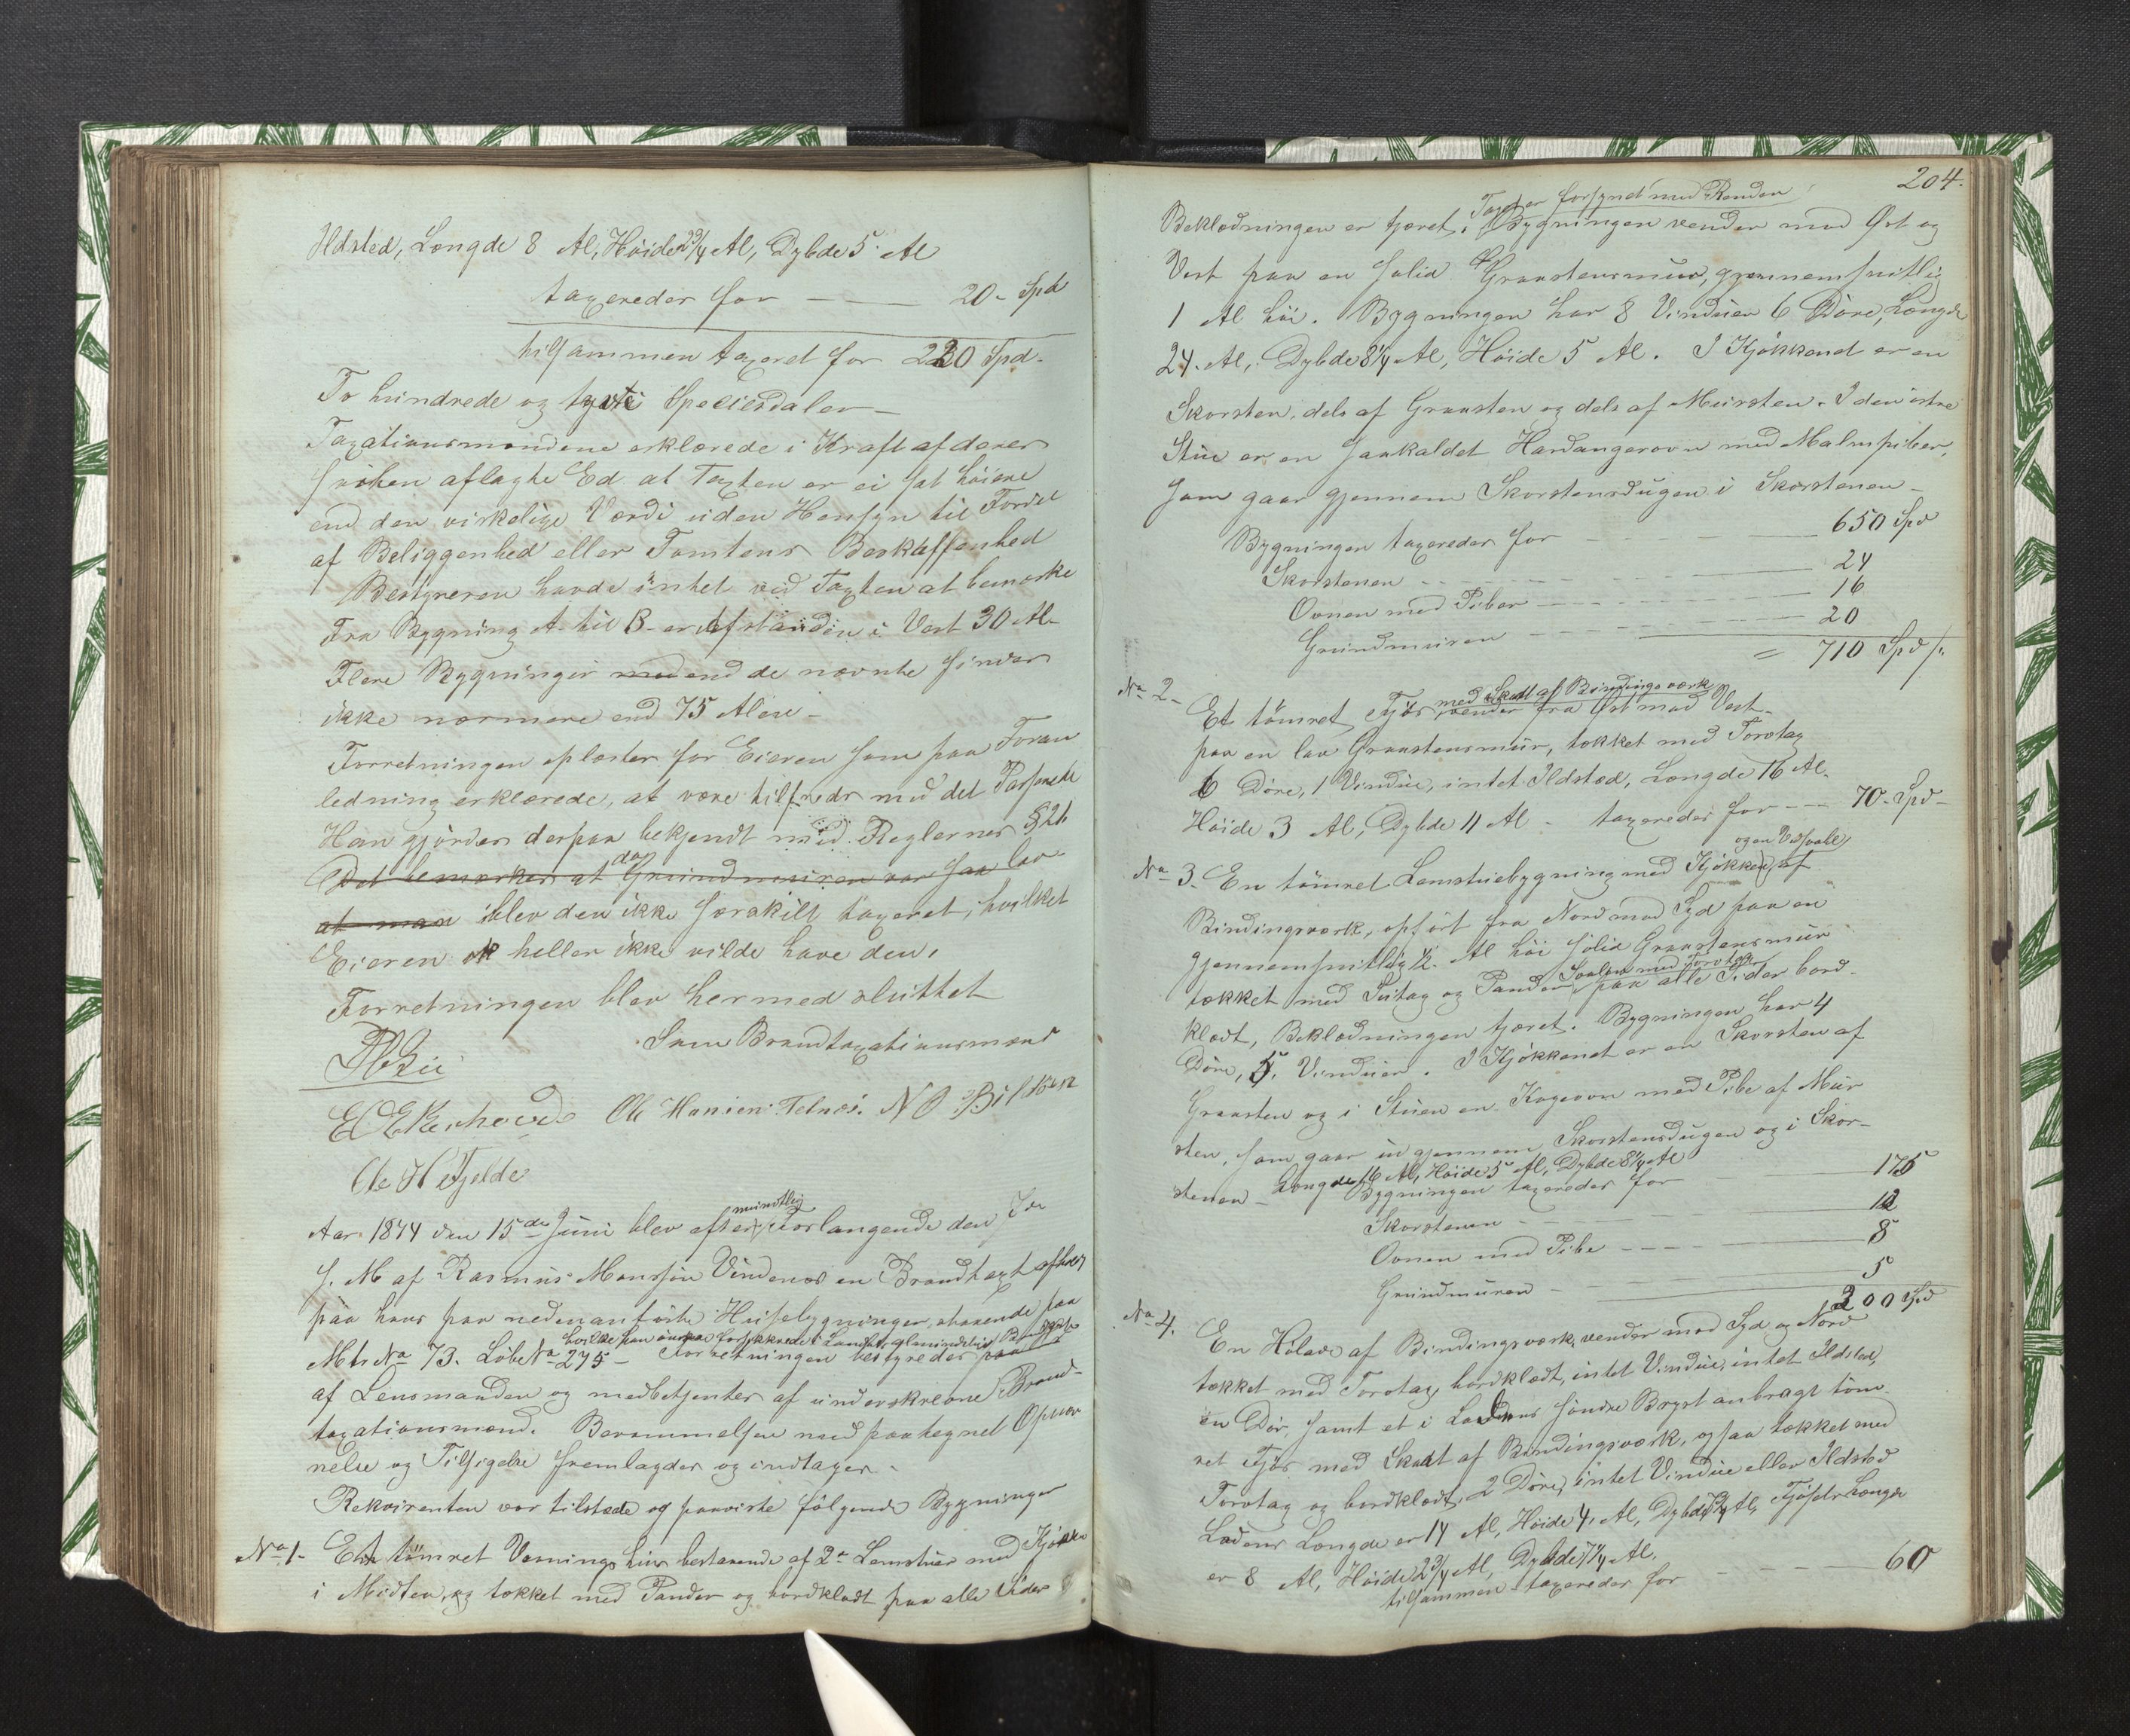 Ildsted, Længde 8 Al, Høide 2 3/4 Al, Dybde 5 Al
taxeredes for — 20 - Spd
tilsammen taxeret for 220 Spd.
To hundrede og tyve Speciesdaler —
Taxationsmændene erklærede i Kraft af deres
forhen aflagte Ed at Taxten er ei sat høiere
end den virkelige Værdi uden Hensyn til Fordel
af Beliggenhed eller Tomtens Beskaffenhed
Bestyreren havde intet ved Taxten at bemærke
Fra Bygning A til B er Afstanden i Vest 30 Al-
Flere Bygninger end de nævnte findes
ikke nærmere end 75 Alen -
Forretningen oplæstes for Eieren som paa Foran
ledning erklærede, at være tilfreds med det Passerede
Han gjordes derpaa bekjendt med Reglernes § 21
Det bemærkes at da Grundmuren var saa lav
at man blev den ikke særskilt taxeret, hvilket
Eieren heller ikke vilde have den.
Forretningen blev hermed sluttet
Som Brandtaxationsmænd
Ole Hansen Telnæs. N O Bilstøen
Ole H Tjelde
Aar 1874 den 15de Juni blev efter mundtlig Forlangende den
s. M af Rasmus Monssøn Vindenæs en Brandtaxt afholdt
paa hans paa nedenanførte Huusebygninger, staaende paa
Mts No 73. Løbe No 275 - hvilke han ønsker forsikkrede i Landets almindelige Brandkasse
Forretningen bestyredes
af Lensmanden og medbetjentes af underskrevne Brand-
taxationsmænd. Berammelsen med paategnet Opnæv
nelse og Tilsigelse fremlagdes og indtages -
Rekvirenten var tilstede og paaviste følgende Bygninger
No 1 - Et tømret Vaaningshus bestaaende af 2de Lemstuer med Kjøkken
i Midten, og tækket med Pander og bordklædt paa alle Sider
204.
Taget er forsynet med Render
Beklædningen er tjæret. Bygningen vender mod Øst og
Vest paa en solid Graastensmuur, gjennemsnitlig
1 Al høi. Bygningen har 8 Vinduer 6 Døre, Længde
24. Al, Dybde 8 1/4 Al, Høide 5 Al. I Kjøkkenet er en
Skorsten, dels af Graasten og dels af Mursten. I den østre
Stue er en saakaldet Hardangerovn med Malmpiber,
som gaar gjennem Skorstensdugen i Skorstenen -
Bygningen taxeredes for — 650 Spd
Skorstenen — 24
Ovnen med Piber — 16
Grundmuren — 20
= 710 Spd
No 2 - Et tømret Fjøs med Skut af Bindingsværk, vender fra Øst mod Vest -
paa en lav Graastensmuur, tækket med Torvtag
6 Døre, 1 Vindue, intet Ildsted, Længde 16 Al.
Høide 3 Al, Dybde 11 Al - taxeredes for — 70 - Spd -
No 3. En tømret Lemstuebygning med Kjøkken og en Vedsvale af
Bindingsværk, opført fra Nord mod Syd paa en
gjennemsnitlig 1/2 Al høi solid Graastensmuur
tækket med Sutag og Pander, Svalen med Torvtag, paa alle Sider bord-
klædt, Beklædningen tjæret. Bygningen har 4
Døre, 5. Vinduer. I Kjøkkenet er en Skorsten af
Graasten og i Stuen en Kogeovn med Pibe af Mur
sten, som gaar ud gjennem Skorstensdugen og i Skor-
stenen - Længde 16 Al, Høide 5 Al, Dybde 8 1/4 Al
Bygningen taxeredes for — 175
Skorstenen — 12
Ovnen med Pibe — 8
Grundmuren — 5
200 Spd
No 4. En Hølade af Bindingsværk, vender mod Syd og Nord
tækket med Torvtag, bordklædt, intet Vindue, intet Ildsted,
en Dør, samt et i Ladens søndre Bryst anbragt tøm-
ret Fjøs med Skut af Bindingsværk, ogsaa tækket med
Torvtag og bordklædt, 2 Døre, intet Vindue eller Ildsted
Ladens Længde er 14 Al, Høide 4. Al, Dybde Al, Fjøsets Længde
er 8 Al, Høide 2 3/4 Al, Dybde 7 1/4 Al.
tilsammen taxeredes for — 60